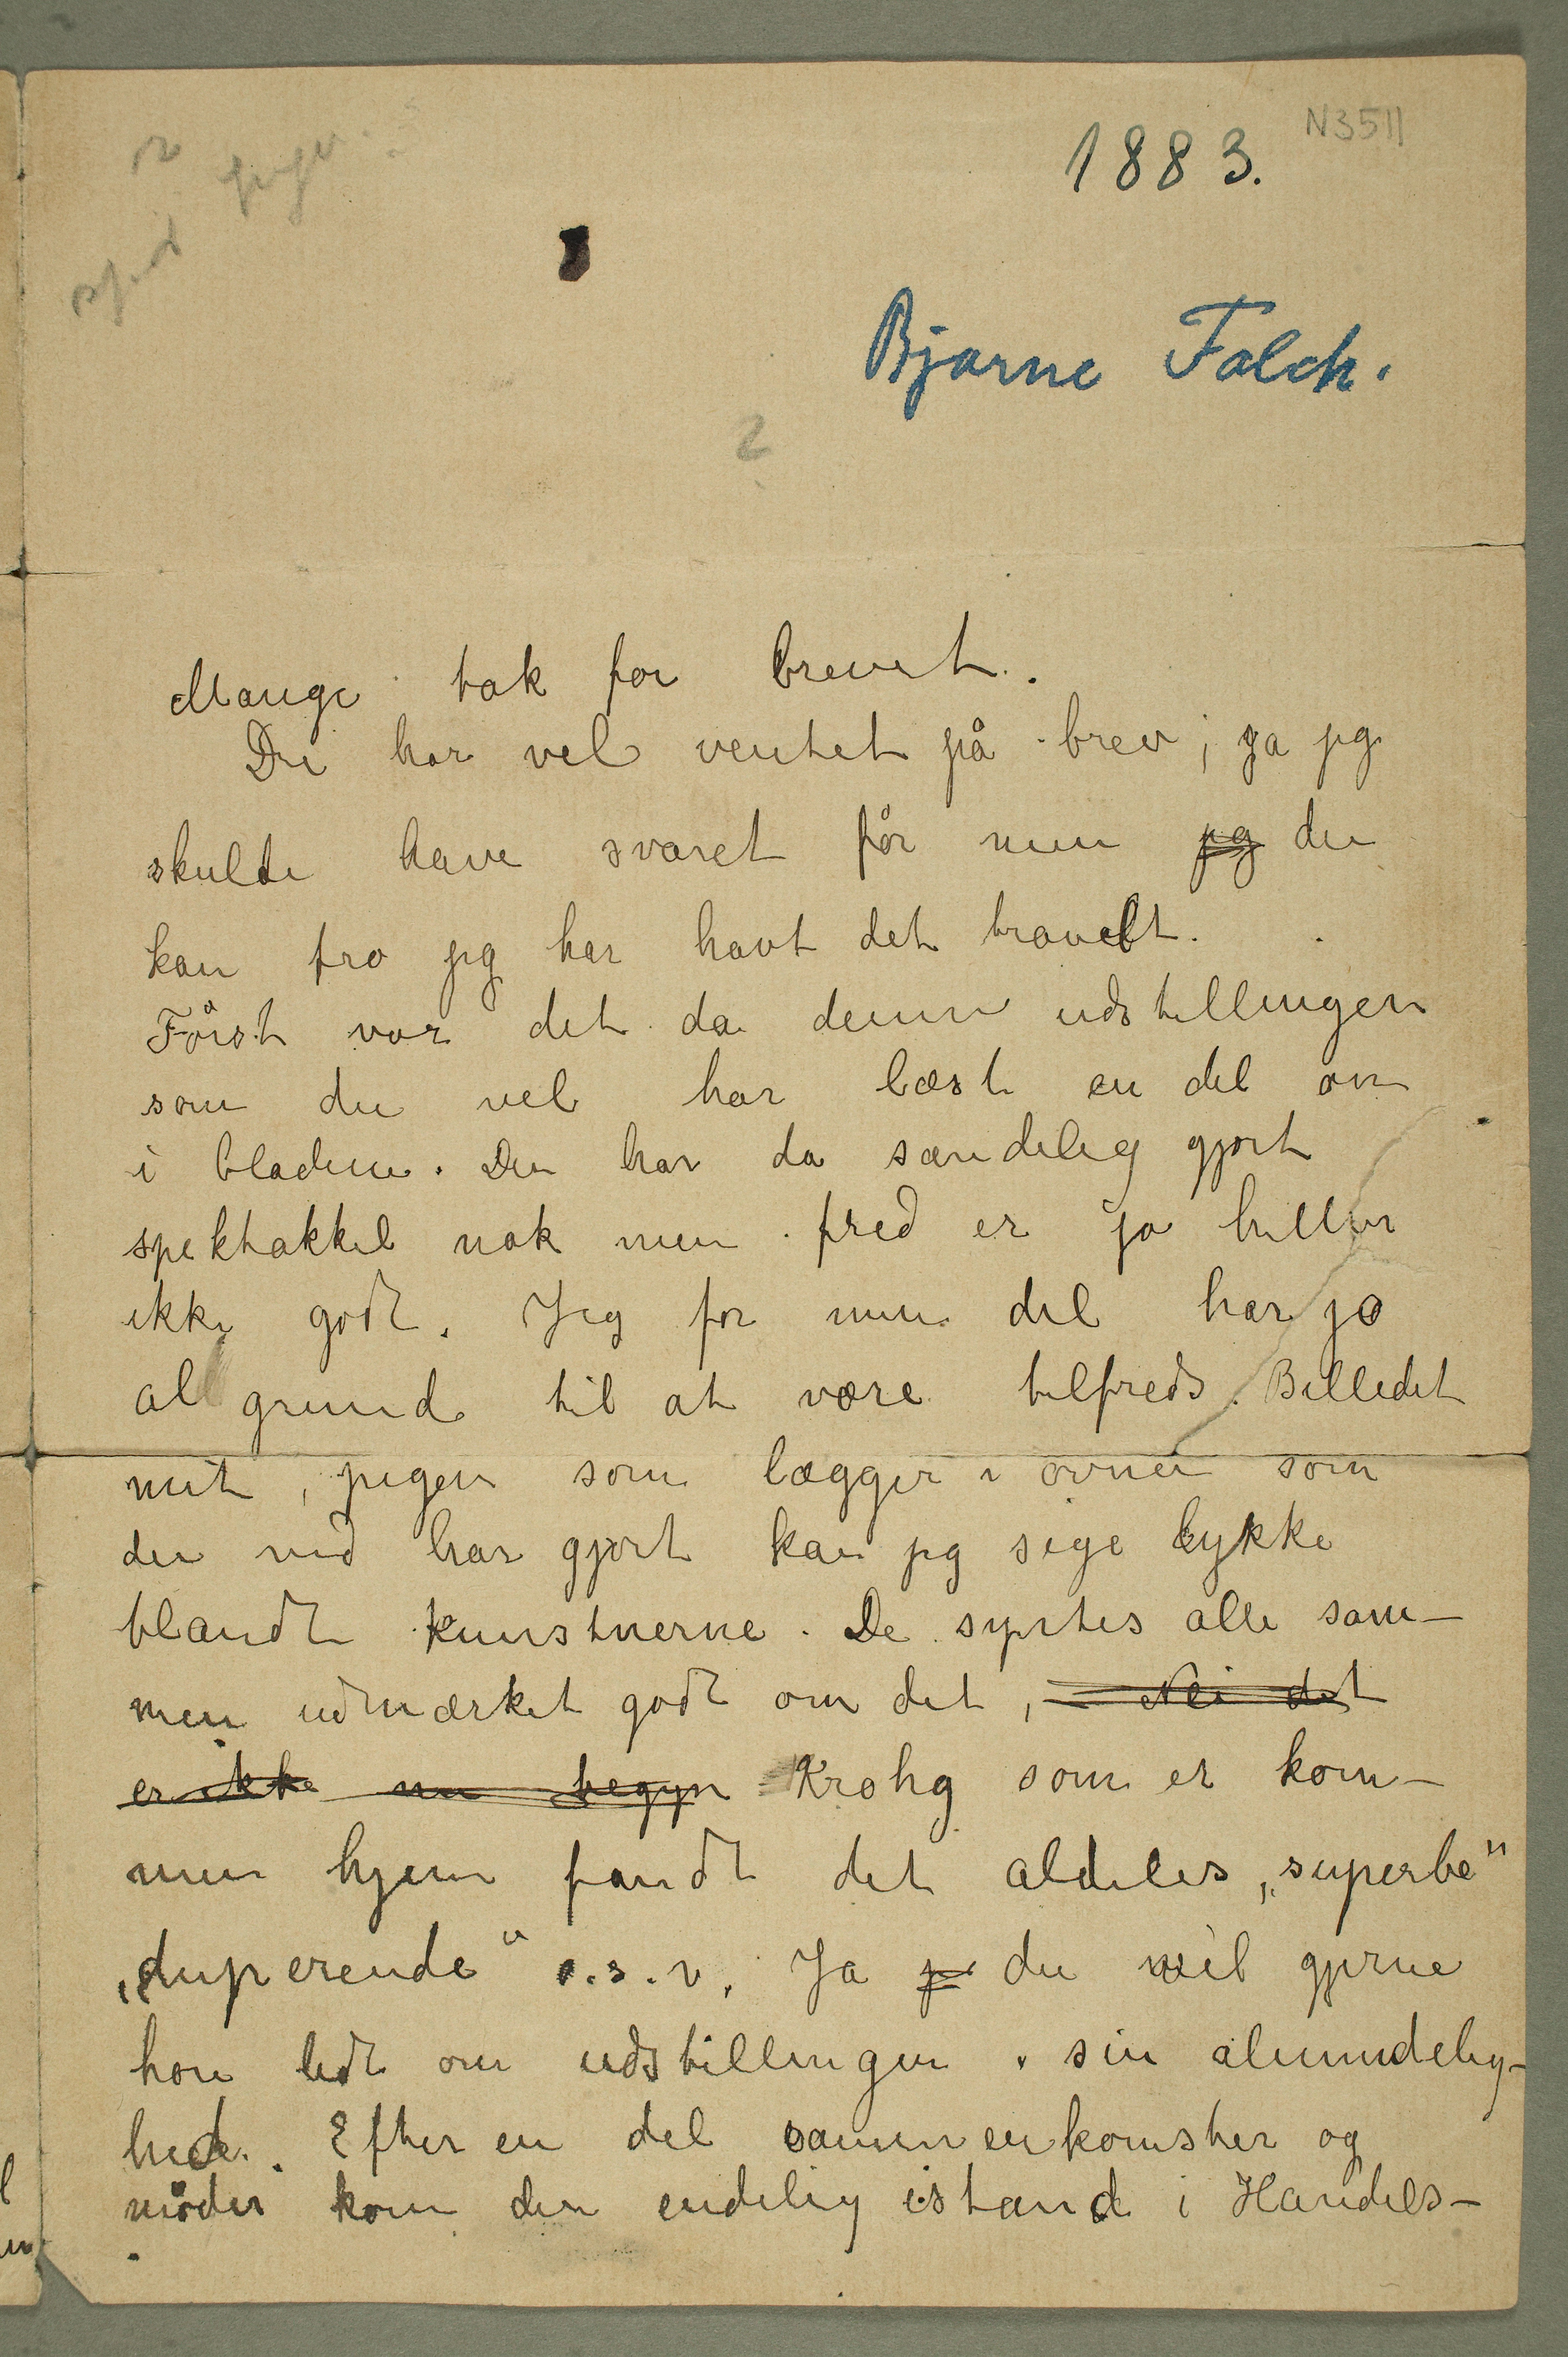 N3511
1883.
Bjarne Falch.
2
Mange tak for brevet.
Du har vel ventet på brev; ja jeg
skulde have svaret før men jeg du
kan tro jeg har havt det travelt.
Først var det da denne udstillingen
som du vel har læst en del om
i bladene. Den har da sandelig gjort
spektakkel nok men fred er jo heller
ikke godt. Jeg for min del har jo
al grund til at være tilfreds. Billedet
mit, pigen som lægger i ovnen som
du ved har gjort kan jeg sige lykke
blandt kunstnerne. De syntes alle sam-
men udmærket godt om det, Nei det
er ikke nu begyn Krohg som er kom-
men hjem fandt det aldeles „superbe"
„duperende" o.s.v. Ja j du vil gjerne
høre lidt om udstillingen i sin alminnelig-
hed. Efter en del sammenkomster og
møder kom den endelig istand i Handels-